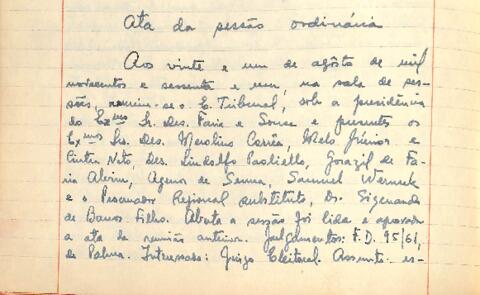 Ata da sessão ordinária
Aos vinte e um de agôsto de mil
novecentos e sessenta e um, na sala de ses-
sões, reuniu-se o E. Tribunal, sob a presidência
do Exmo Sr. Des. Faria e Sousa e presentes os
Exmos Srs. Des. Merolino Corrêa, Melo Júnior e
Cintra Neto, Drs. Lindolfo Paoliello, Gorazil de Fa-
ria Alvim, Agenor de Senna, Samuel Werneck
e o Procurador Regional substituto, Dr. Sigenando
de Barros Filho. Aberta a sessão foi lida e aprovada
a ata da reunião anterior. Julgamentos: F.D. 95/61,
de Palma. Interessado: Juízo Eleitoral. Assunto: es-